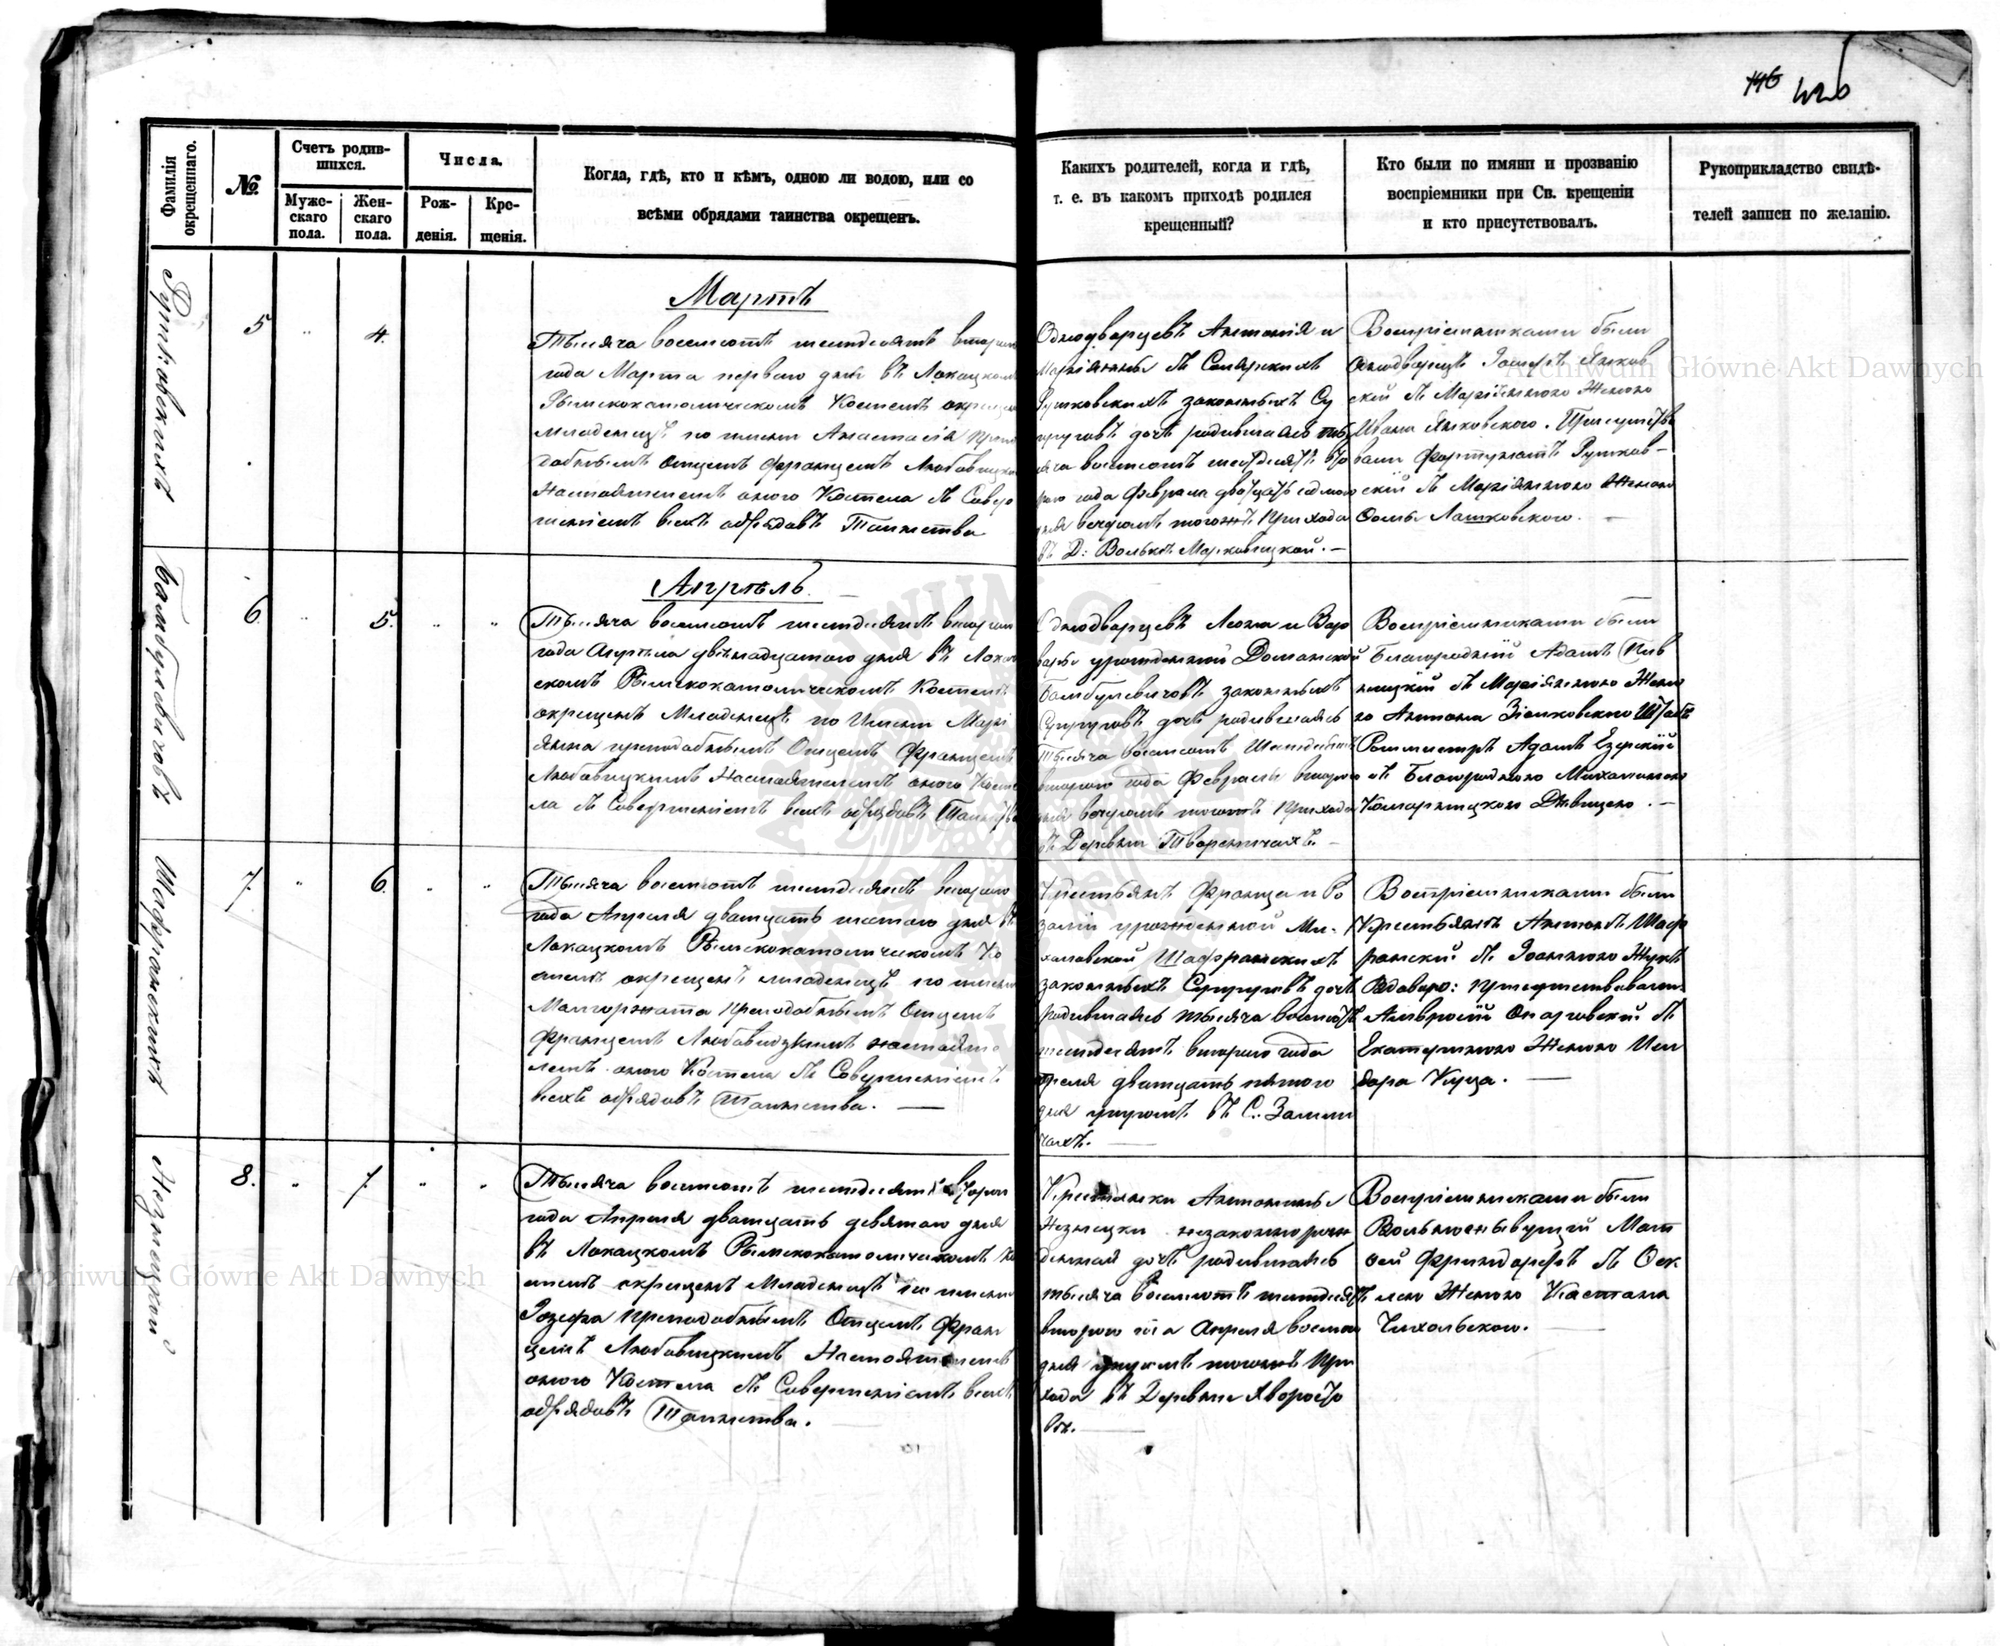 146 446
Фамилія окрещеннаго.
№
Счетъ родив-
шихся.
Муже-
скаго
пола.
Жен-
скаго
пола.
Числа.
Рож-
денія.
Кре-
щенія.
Когда, гдѣ, кто и кѣмъ, одною ли водою, или со
всѣми обрядами таинства окрещенъ.
Какихъ родителей, когда и гдѣ,
т. е. въ какомъ приходѣ родился
крещенный?
Кто были по имяни и прозванію
воспріемники при Св. крещеніи
и кто присутствовалъ.
Рукоприкладство свидѣ-
телей записи по желанію.
Рутковскихъ
5 " 4.
Мартъ
Тысяча восемсотъ шестдесятъ второго
года Марта перваго дня въ Локацкомъ
Римскокатолическомъ Костелѣ окрещенъ
младенецъ по имени Анастасія Препо
добнымъ Отцемъ Францемъ Любовицкимъ
Настоятелемъ оного Костела съ Совер
шеніемъ всехъ обрядовъ Таинства
Однодворцевъ Антонія и
Маріянны съ
Рутковскихъ законныхъ Су
пруговъ дочь родившаяся тыс
яча восемсотъ шестдесятъ вто
рого года Февраля двадцать седмого
дня вечеромъ тогожъ Прихода
въ Д: Волькѣ Марковицкой. —
Воспріемниками были
Однодворецъ Іосифъ Янков
скій съ Маріянною Женою
Ивана Янковского. Присутство
вали Фортунатъ Рутков-
скій съ Маріянною Женою
Фомы Лашковского. —
Бамбулевичовъ
6 " 5. " "
Апрѣль.
Тысяча восемсотъ шестдесятъ второго
года Апрѣля двѣнадцатого дня въ Локац
скомъ Римскокатолическомъ Костелѣ
окрещенъ Младенецъ по Имени Марі
янна преподобнымъ Отцемъ Францемъ
Любовицкимъ Настоятелемъ оного Косте
ла съ Совершеніемъ всехъ обрядовъ Таинства
Однодворцевъ Леона и Вар
вары урожденной Доманской
Бамбулевичовъ законныхъ
Супруговъ дочь родившаяся
Тысяча восемсотъ Шестдесятъ
второго года Февраля второго
дня вечеромъ тогожъ Прихода
въ Деревни Творыничахъ. —
Воспріемниками были
Благородный Адамъ Пив
ницкій съ Маріянною Жено
ю Антона Зіомковского Штабъ
Ротмистръ Адамъ Езерскій
съ Благородною Михалиною
Комарницкою Дѣвицею. —
Шафранскихъ
7. " 6. " "
Тысяча восемсотъ шестдесятъ второго
года Апреля дватцать шестого дня въ
Локацкомъ Римскокатолическомъ Ко
стелѣ окрещенъ младенецъ по имени
Малгоржата Преподобнымъ Отцемъ
Францемъ Любовицкимъ настояте
лемъ оного Костела съ Совершеніемъ
всехъ обрядовъ Таинства. —
Крестьянъ Франца и Ро
заліи урожденной Ми-
халовской Шафранскихъ
законныхъ Супруговъ дочь
родившаяся тысяча восемсотъ
шестдесятъ второго года
Апреля дватцать пятого
дня утромъ въ С. Замли
чахъ. —
Воспріемниками были
Крестьянъ Антонъ Шаф
ранскій съ Іоанною Жукъ
Вдовою: присутствовали
Амвросій Опарговскій съ
Екатериною Женою Иси
дора Куца. —
Незнецкаю
8. " 7. " "
Тысяча восемсотъ шестдесятъ второго
года Апреля дватцать девятого дня
въ Локацкомъ Римскокатолическомъ Ко
стелѣ окрещенъ Младенецъ по имени
Іозефа Преподобнымъ Отцемъ Фран
цемъ Любовицкимъ Настоятелемъ
оного Костела съ Совершеніемъ всехъ
обрядовъ Таинства. —
Крестянки Антонины
Незнецки незаконнорож
денная дочь родившаяся
тысяча восемсотъ шестдесятъ
второго года Апреля восмого
дня утромъ тогожъ При
хода въ Деревне Хворосто
вѣ. —
Воспріемниками были
Вольноживущій Мат
вей Фриндорфъ съ Фек
лею Женою Каетана
Чихольского. —
Archiwum Główne Akt Dawnych
Archiwum Główne Akt Dawnych